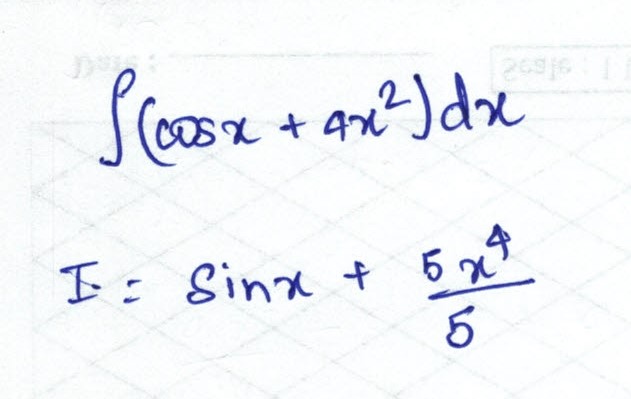 Date :
Scale : 1
∫(cosx + 4x²)dx
I = Sinx + 5x⁴/5